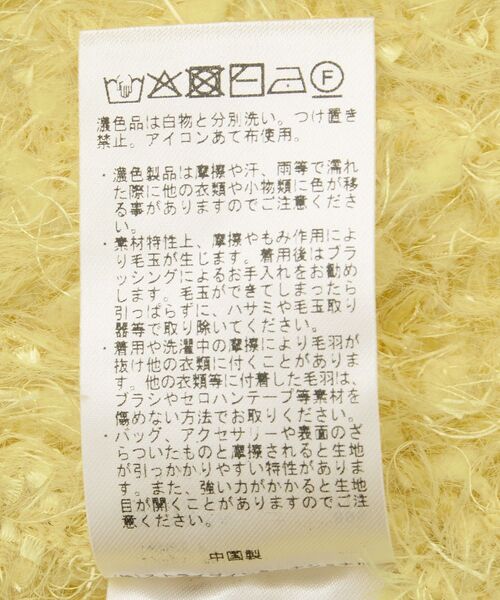 F
濃色品は白物と分別洗い。つけ置き
禁止。アイコンあて布使用。
・濃色製品は摩擦や汗、雨等で濡れ
た際に他の衣類や小物類に色が移
る事がありますのでご注意くださ
い。
・素材特性上、摩擦やもみ作用によ
り毛玉が生じます。着用後はブラ
ッシングによるお手入れをお勧め
します。毛玉ができてしまったら
引っぱらずに、ハサミや毛玉取り
器等で取り除いてください。
・着用や洗濯中の摩擦により毛羽が
抜け他の衣類に付くことがありま
す。他の衣類等に付着した毛羽は、
ブラシやセロハンテープ等素材を
傷めない方法でお取りください。
・バッグ、アクセサリーや表面のざ
らついたものと摩擦されると生地
が引っかかりやすい特性がありま
す。また、強い力がかかると生地
目が開くことがありますのでご注
意ください。
中国製